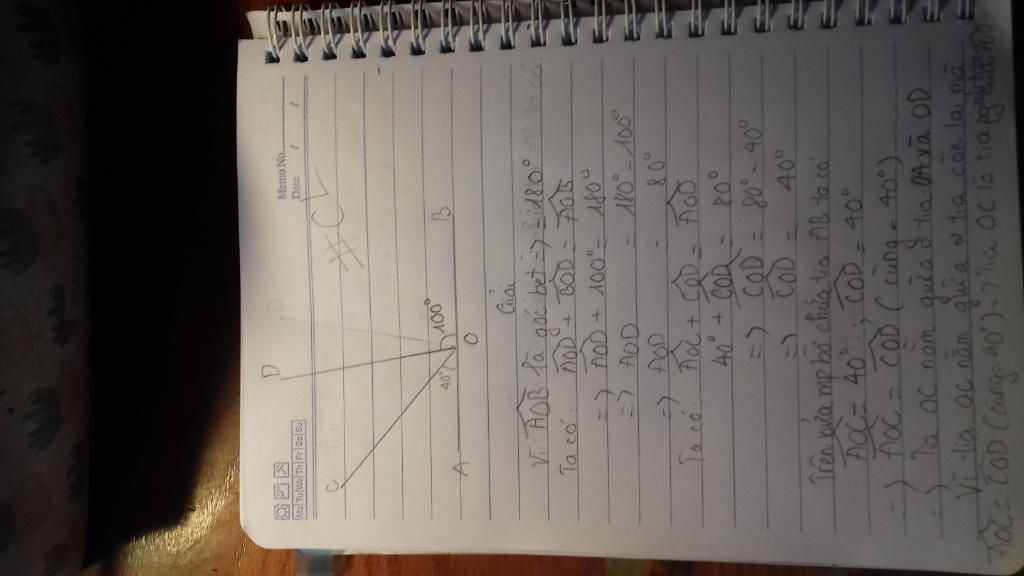 Memo No.
Date / /
Mo Tu We Th Fr Sa Su
#C
C
D
D
40°
100°
A
O
B
Giải
Vì AOB là góc bẹt => 180°
Ta có: AOD + BOD = AOB
=> AOD + 100° = 180°
=> AOD = 180° - 100°
=> AOD = 80°
Ta có: AOC + COD = AOD
40° + COD = 80°
=> COD = 80° - 40°
=> COD = 40°
Trên nửa mp bờ chứa tia AB ta có
AOC = 40°; COD = 40°
=> AOC = COD (cùng = 40°)
=> Tia OC nằm giữa 2 tia OA và OD
Vì tia OC nằm giữa 2 tia còn lại mà
AOC = COD (cùng = 40°) => Tia OC là tia